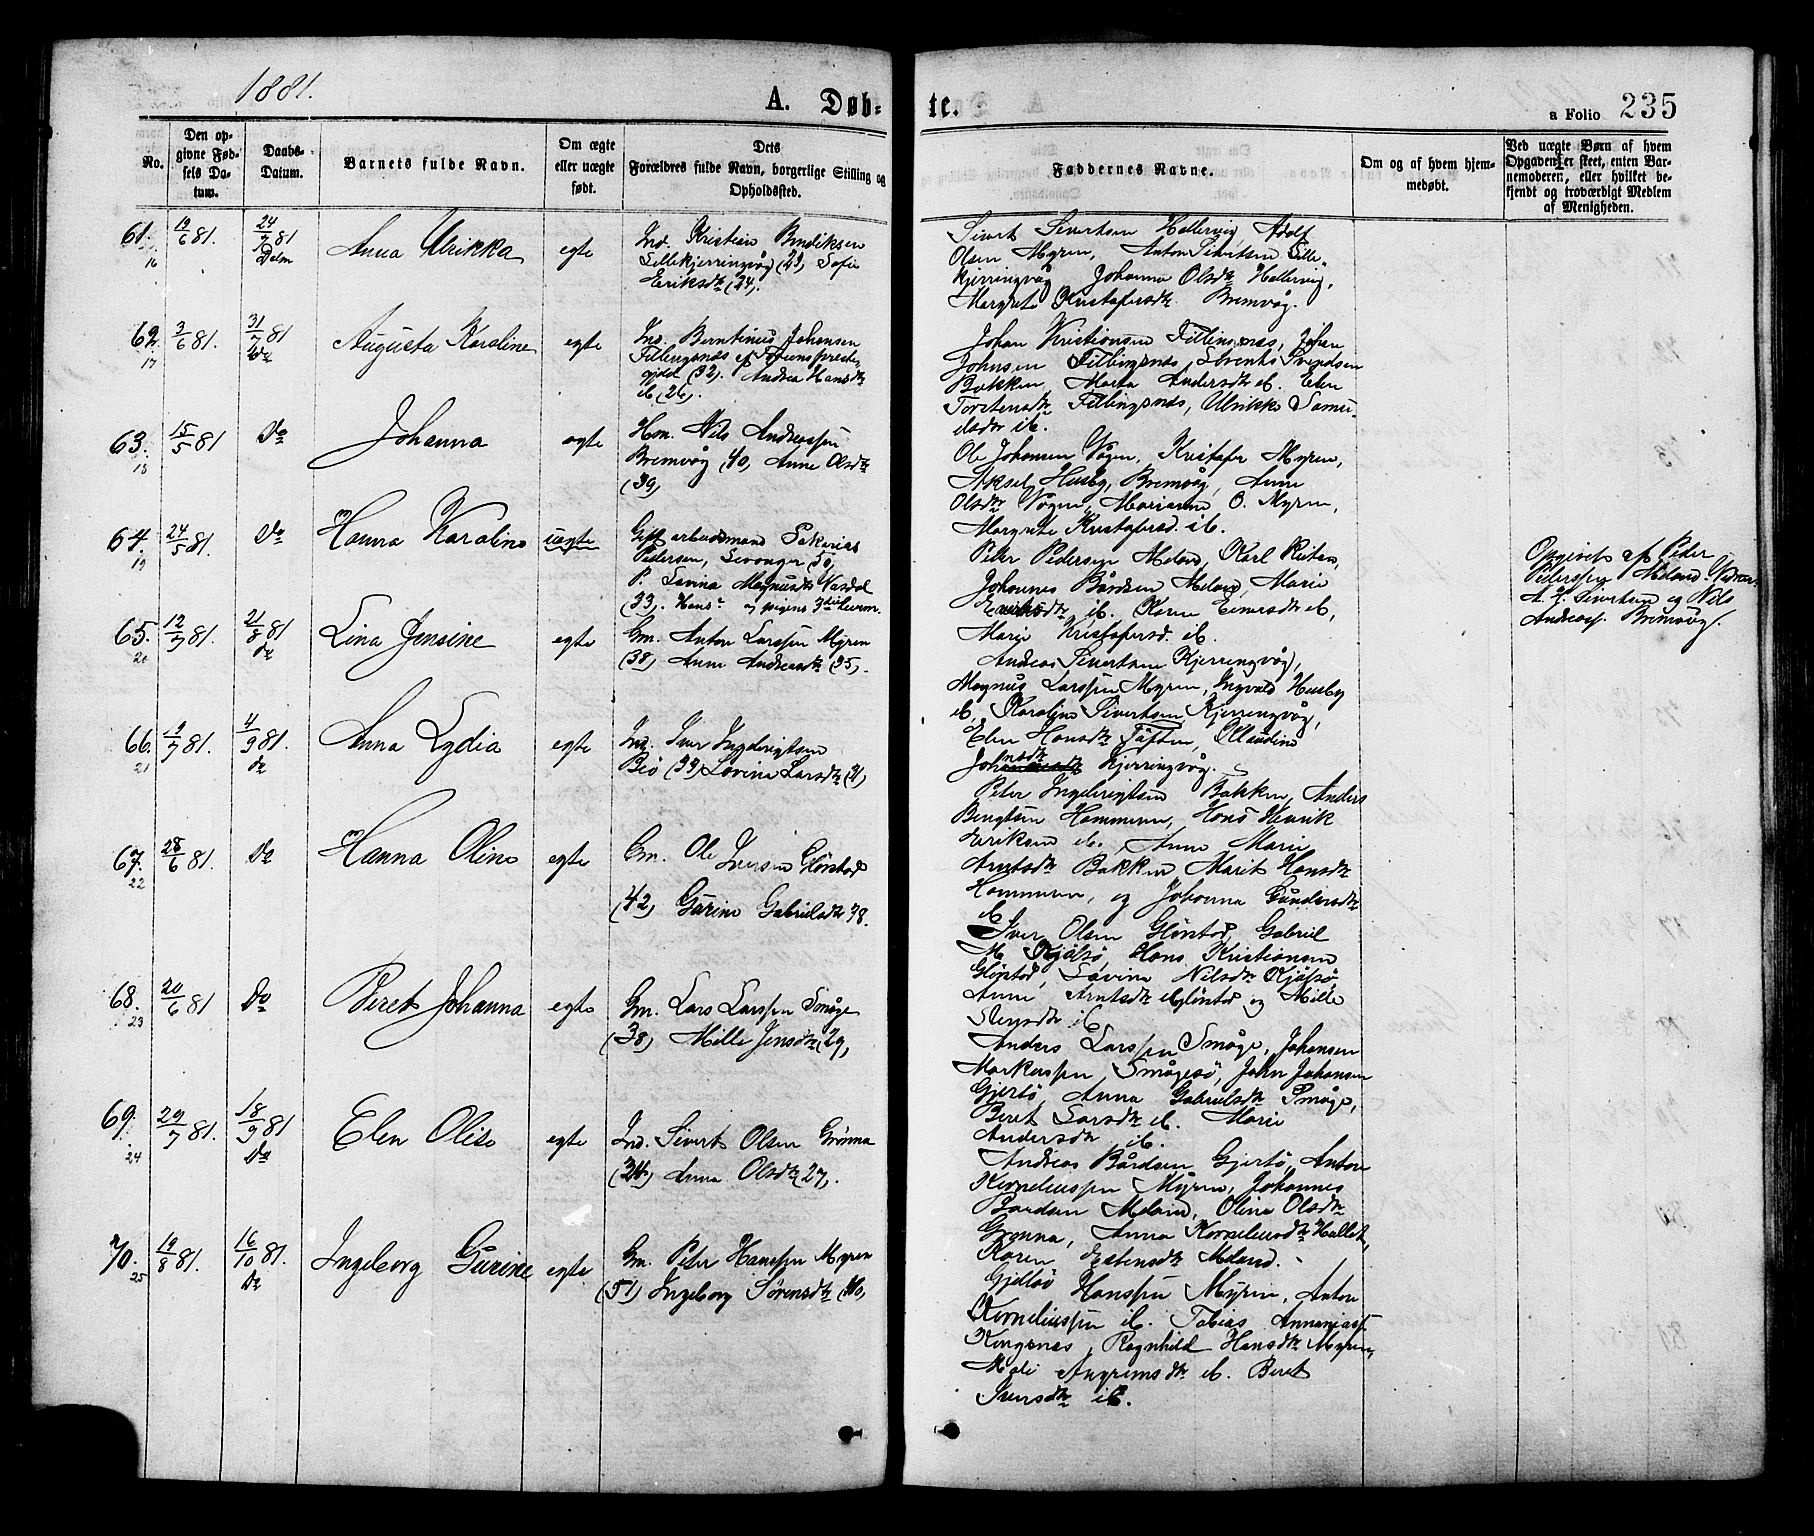 1881.
A. Døb-
te.
a Folio 235
No.
Den op-
givne Fød-
sels Da-
tum.
Daabs-
Datum.
Barnets fulde Navn.
Om ægte
eller uægte
født.
Dets
Forældres fulde Navn, borgerlige Stilling og
Opholdssted.
Faddernes Navne.
Om og af hvem hjem-
medøbt.
Ved uægte Børn af hvem
Opgaven er skeet, enten Bar-
nemoderen, eller hvilket be-
kjendt og troværdigt Medlem
af Menigheden.
61. 16
19/6 81.
24/7 81
Anna Ulrikka
egte
Ind. Kristian Bendiksen
Lillekjerringvåg (29) Sofie
Eriksdtr (24).
Sivert Sivertsen Hallervig, Adolf
Olsen Myren, Anton Sivertsen Lille-
kjerringvåg Johanna Olsdtr Hallervig,
Margrete Kristofersdtr Bremvåg.
62. 17
3/6 81.
31/7 81
Do
Augusta Karoline
egte
Ind. Berntinus Johansen
Fillingsnæs
gjeld (32). Andrea Hansdtr
ib (26).
Johan Kristiansen Fillingsnæs, Johan
Johnsen Fillingsnæs, Lorents Svendsen
Bakken, Marta Andersdtr ib. Elen
Torstensdtr Fillingsnæs, Ulrikke Samu-
elsdtr ib.
63. 18
15/5 81
Do
Johanna
egte
Hm. Nils Andreassen
Bremvåg (40, Anne Olsdtr
(39)
Ole Johansen Vågen, Kristofer Myren,
Aksel Husby, Bremvåg, Anne
Olsdtr Vågen, Marianne O. Myren,
Margrete Kristofersd. ib.
64. 19
24/5 81.
Do
Hanna Karoline
uægte
Gift arbeidsmand Sakarias
Pedersen, Levanger (50,
P. Lavina Magnusdtr Vasdal
(33). Hans og pigens 3die Leierm.
Peter Pedersen Meland, Karl
Johannes Bårdsen Meland, Marie
ib. Karen Einersdtr ib,
Marie Kristofersd. ib.
Opgivet af Peder
Pederssen Meland. Vidner:
A. H. Sivertsen og Nils
Andreass. Bremvåg.
65. 20
12/7 81.
21/8 81
do
Lina Jensine
egte
Gm. Anton Larssen Myren
(38) Anne Andreasdtr (35).
Andreas Sivertsen Kjerringvåg,
Magnus Larssen Myren, Ingvald Husby
ib, Karoline Sivertsen Kjerringvåg,
Elen Hansdtr Taften, Claudine
Johnsdtr Kjerringvåg.
66. 21
9/7 81.
4/9 81.
do
Anna Lydia
egte
Ind. Iver Ingebrigtsen
Beö (39) Lovina Larsdtr (21)
Peter Ingebrigtsen Bakken, Anders
Bengtsen Hammeren, Hans Henrik
Eriksen ib., Anne Marie
Arntsdtr Bakken Marit Hansdtr
Hammeren, og Johanna Gundersdtr
ib
67. 22
28/6 81.
Do
Hanna Oline
egte
Gm. Ole Iversen Glörstad
(42) Gurine Gabrielsdtr 38.
Iver Olsen Glörstad, Gabriel
M. Kjölsö, Hans Kristiansen
Glörstad, Lovina Nilsdtr Kjölsö,
Anne Arntsdtr Glörstad og Mille
ib
68. 23
20/6 81
Do
Beret Johanna
egte
Gm. Lars Larssen Smöge
(38) Mille Jensdtr (29,
Anders Larssen Smöge, Johansen
Markussen Smögesö, John Johansen
Gjertö, Anna Gabrielsdtr Smöge,
Beret Larsdtr ib. Marie
Andersdtr ib.
69. 24
29/7 81.
18/9 81
Do
Elen Olise
egte
Ind. Sivert Olsen Grönna
(34) Anna Olsdtr (27).
Andreas Bårdsen Gjertö, Anton
Korneliussen Myren, Johannes
Bardsen Meland, Olina Olsdtr
Grønna, Anna Korneliusdtr Hallet,
Karen Estensdtr Meland.
70. 25
19/8 81.
16/10 81.
Do
Ingeborg Gurine
egte
Gm. Peter Hanssen Myren
(51) Ingeborg Sörensdtr (40,
Hanssen Myren, Anton
Korneliussen ib. Tobias Annaniass.
Kongsnæs, Ragnhild Hansdtr Myren,
Mali Angrimsdtr ib. Beret
Iversdtr ib.